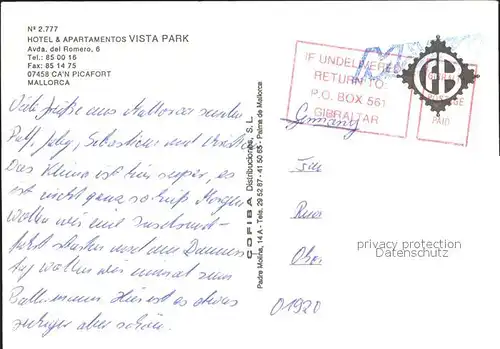 Nº 2.777
HOTEL & APARTAMENTOS VISTA PARK
Avda. del Romero, 6
Tel.: 85 00 16
Fax: 85 14 75
07458 CA'N PICAFORT
MALLORCA
Viele Grüße aus Mallorca senden
Sebastian und
Das Klima ist hier super, es
ist nicht ganz so heiß. Morgen
wollen wir mit
starten und am Donners
tag wollen wir einmal zum
Ballermann. Hier ist es etwas
ruhiger aber schön.
COFIBA Distribuciones, S.L.
Padre Molina, 14 A - Tels. 29 52 87 - 41 50 65 - Palma de Mallorca
IF UNDELIVERED
RETURN TO:
P.O. BOX 561
GIBRALTAR
GB
PAID
Germany
01920
privacy protection
Datenschutz